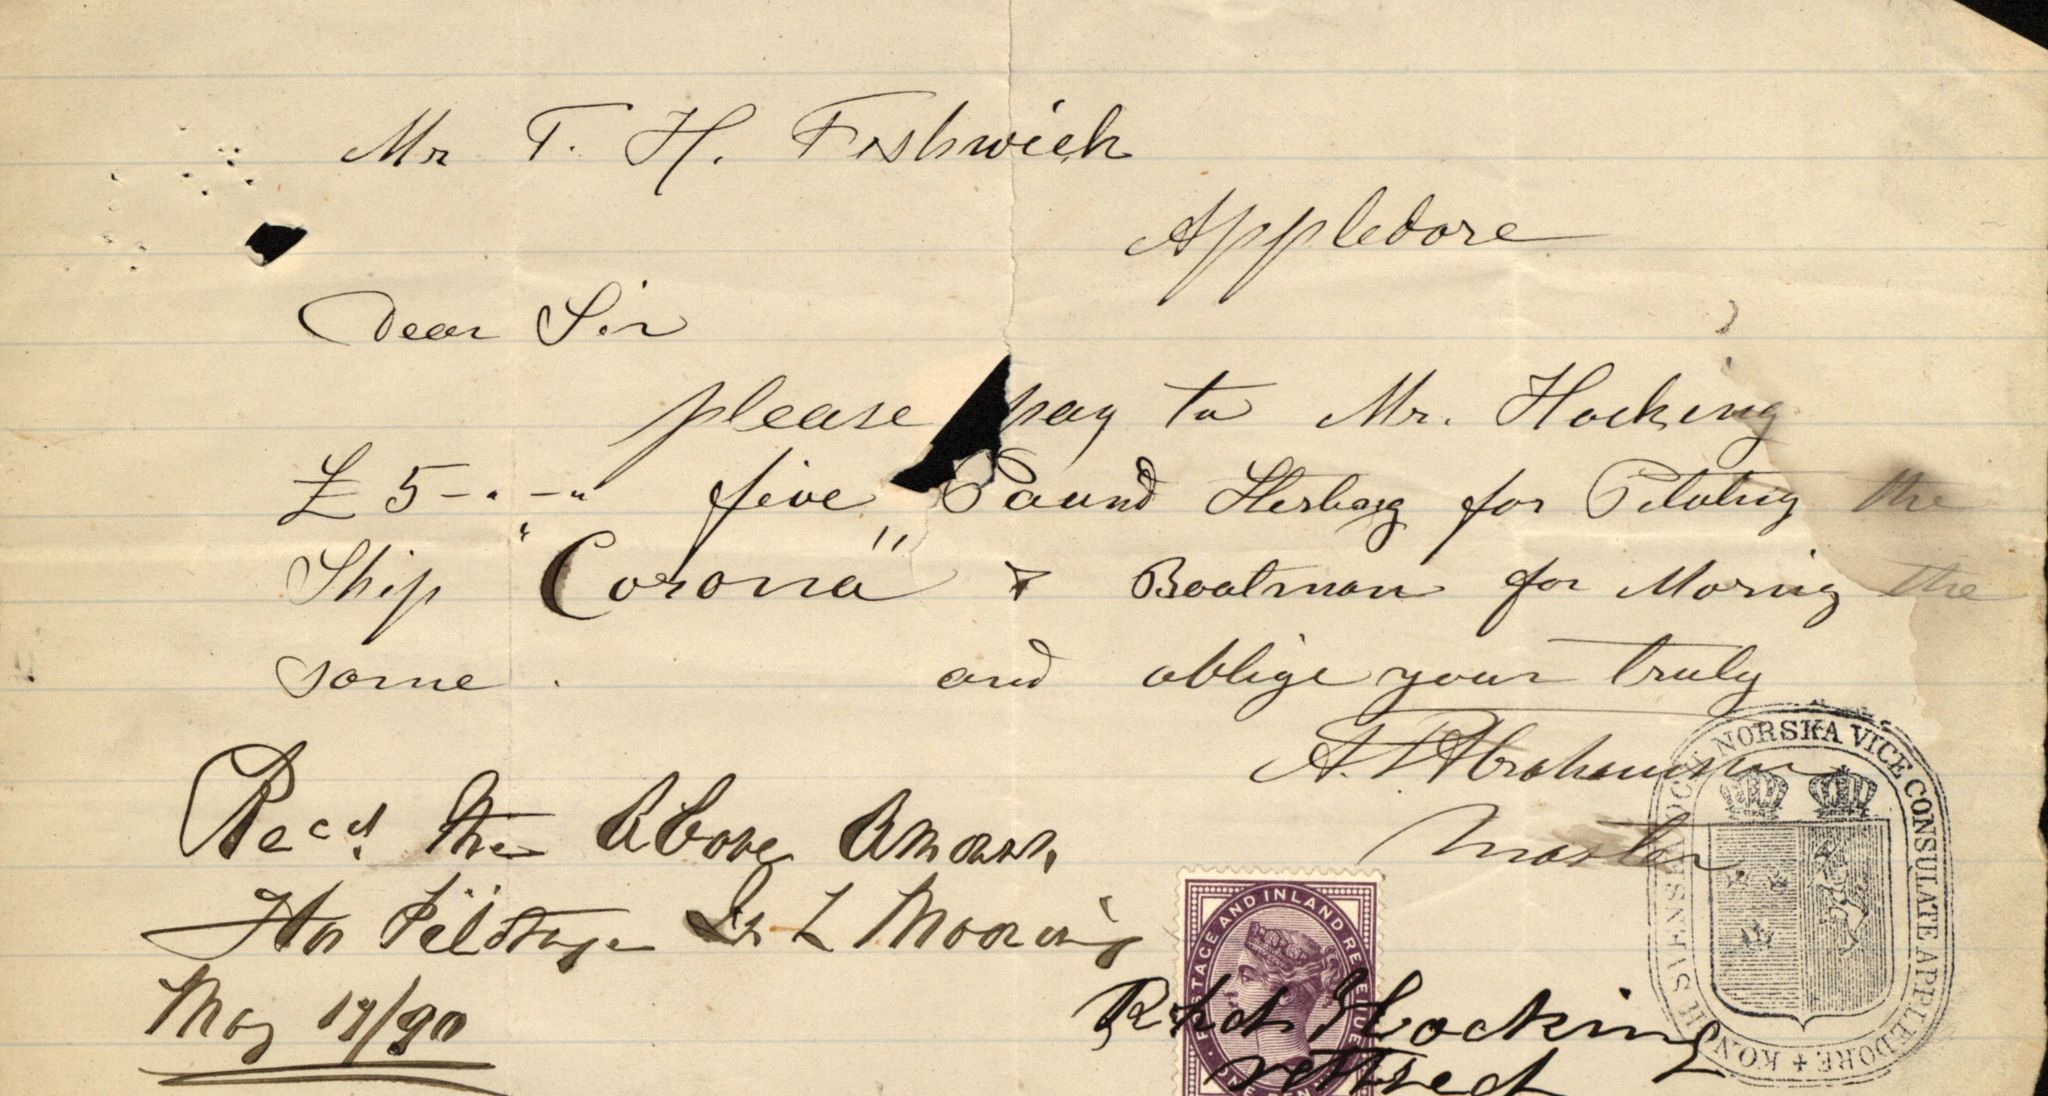 Mr T. H. Fishwick
Appledore
Dear Sir
please pay to Mr. Hocking
£ 5-.-" five Pound Sterling for Piloting the
Ship "Corona" & Boatman for Moring the
same. and oblige your truly
A. P. Abrahamson
Master
Recd. the Above Amoun,
For Pilotage L Mooring
May 19/90
Richd Hocking
KON. SVENSKA OCH NORSKA VICE CONSULATE APPLEDORE
POSTAGE AND INLAND REVENUE